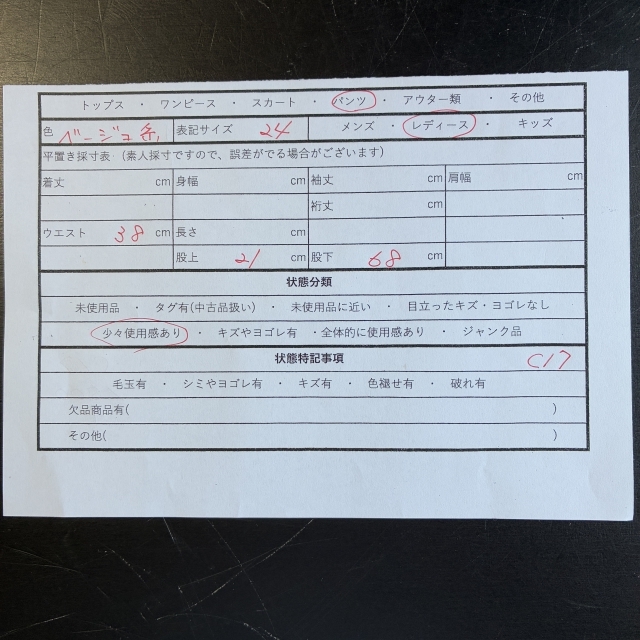 トップス ・ ワンピース ・ スカート ・ パンツ ・ アウター類 ・ その他
色 ベージュ系 表記サイズ 24 メンズ ・ レディース ・ キッズ
平置き採寸表（素人採寸ですので、誤差がでる場合がございます）
着丈 cm 身幅 cm 袖丈 cm 肩幅 cm
裄丈 cm
ウエスト 38 cm 長さ cm
股上 21 cm 股下 68 cm
状態分類
未使用品 ・ タグ有(中古品扱い) ・ 未使用に近い ・ 目立ったキズ・ヨゴレなし
少々使用感あり ・ キズやヨゴレ有 ・全体的に使用感あり ・ ジャンク品
状態特記事項 C17
毛玉有 ・ シミやヨゴレ有 ・ キズ有 ・ 色褪せ有 ・ 破れ有
欠品商品有( )
その他( )